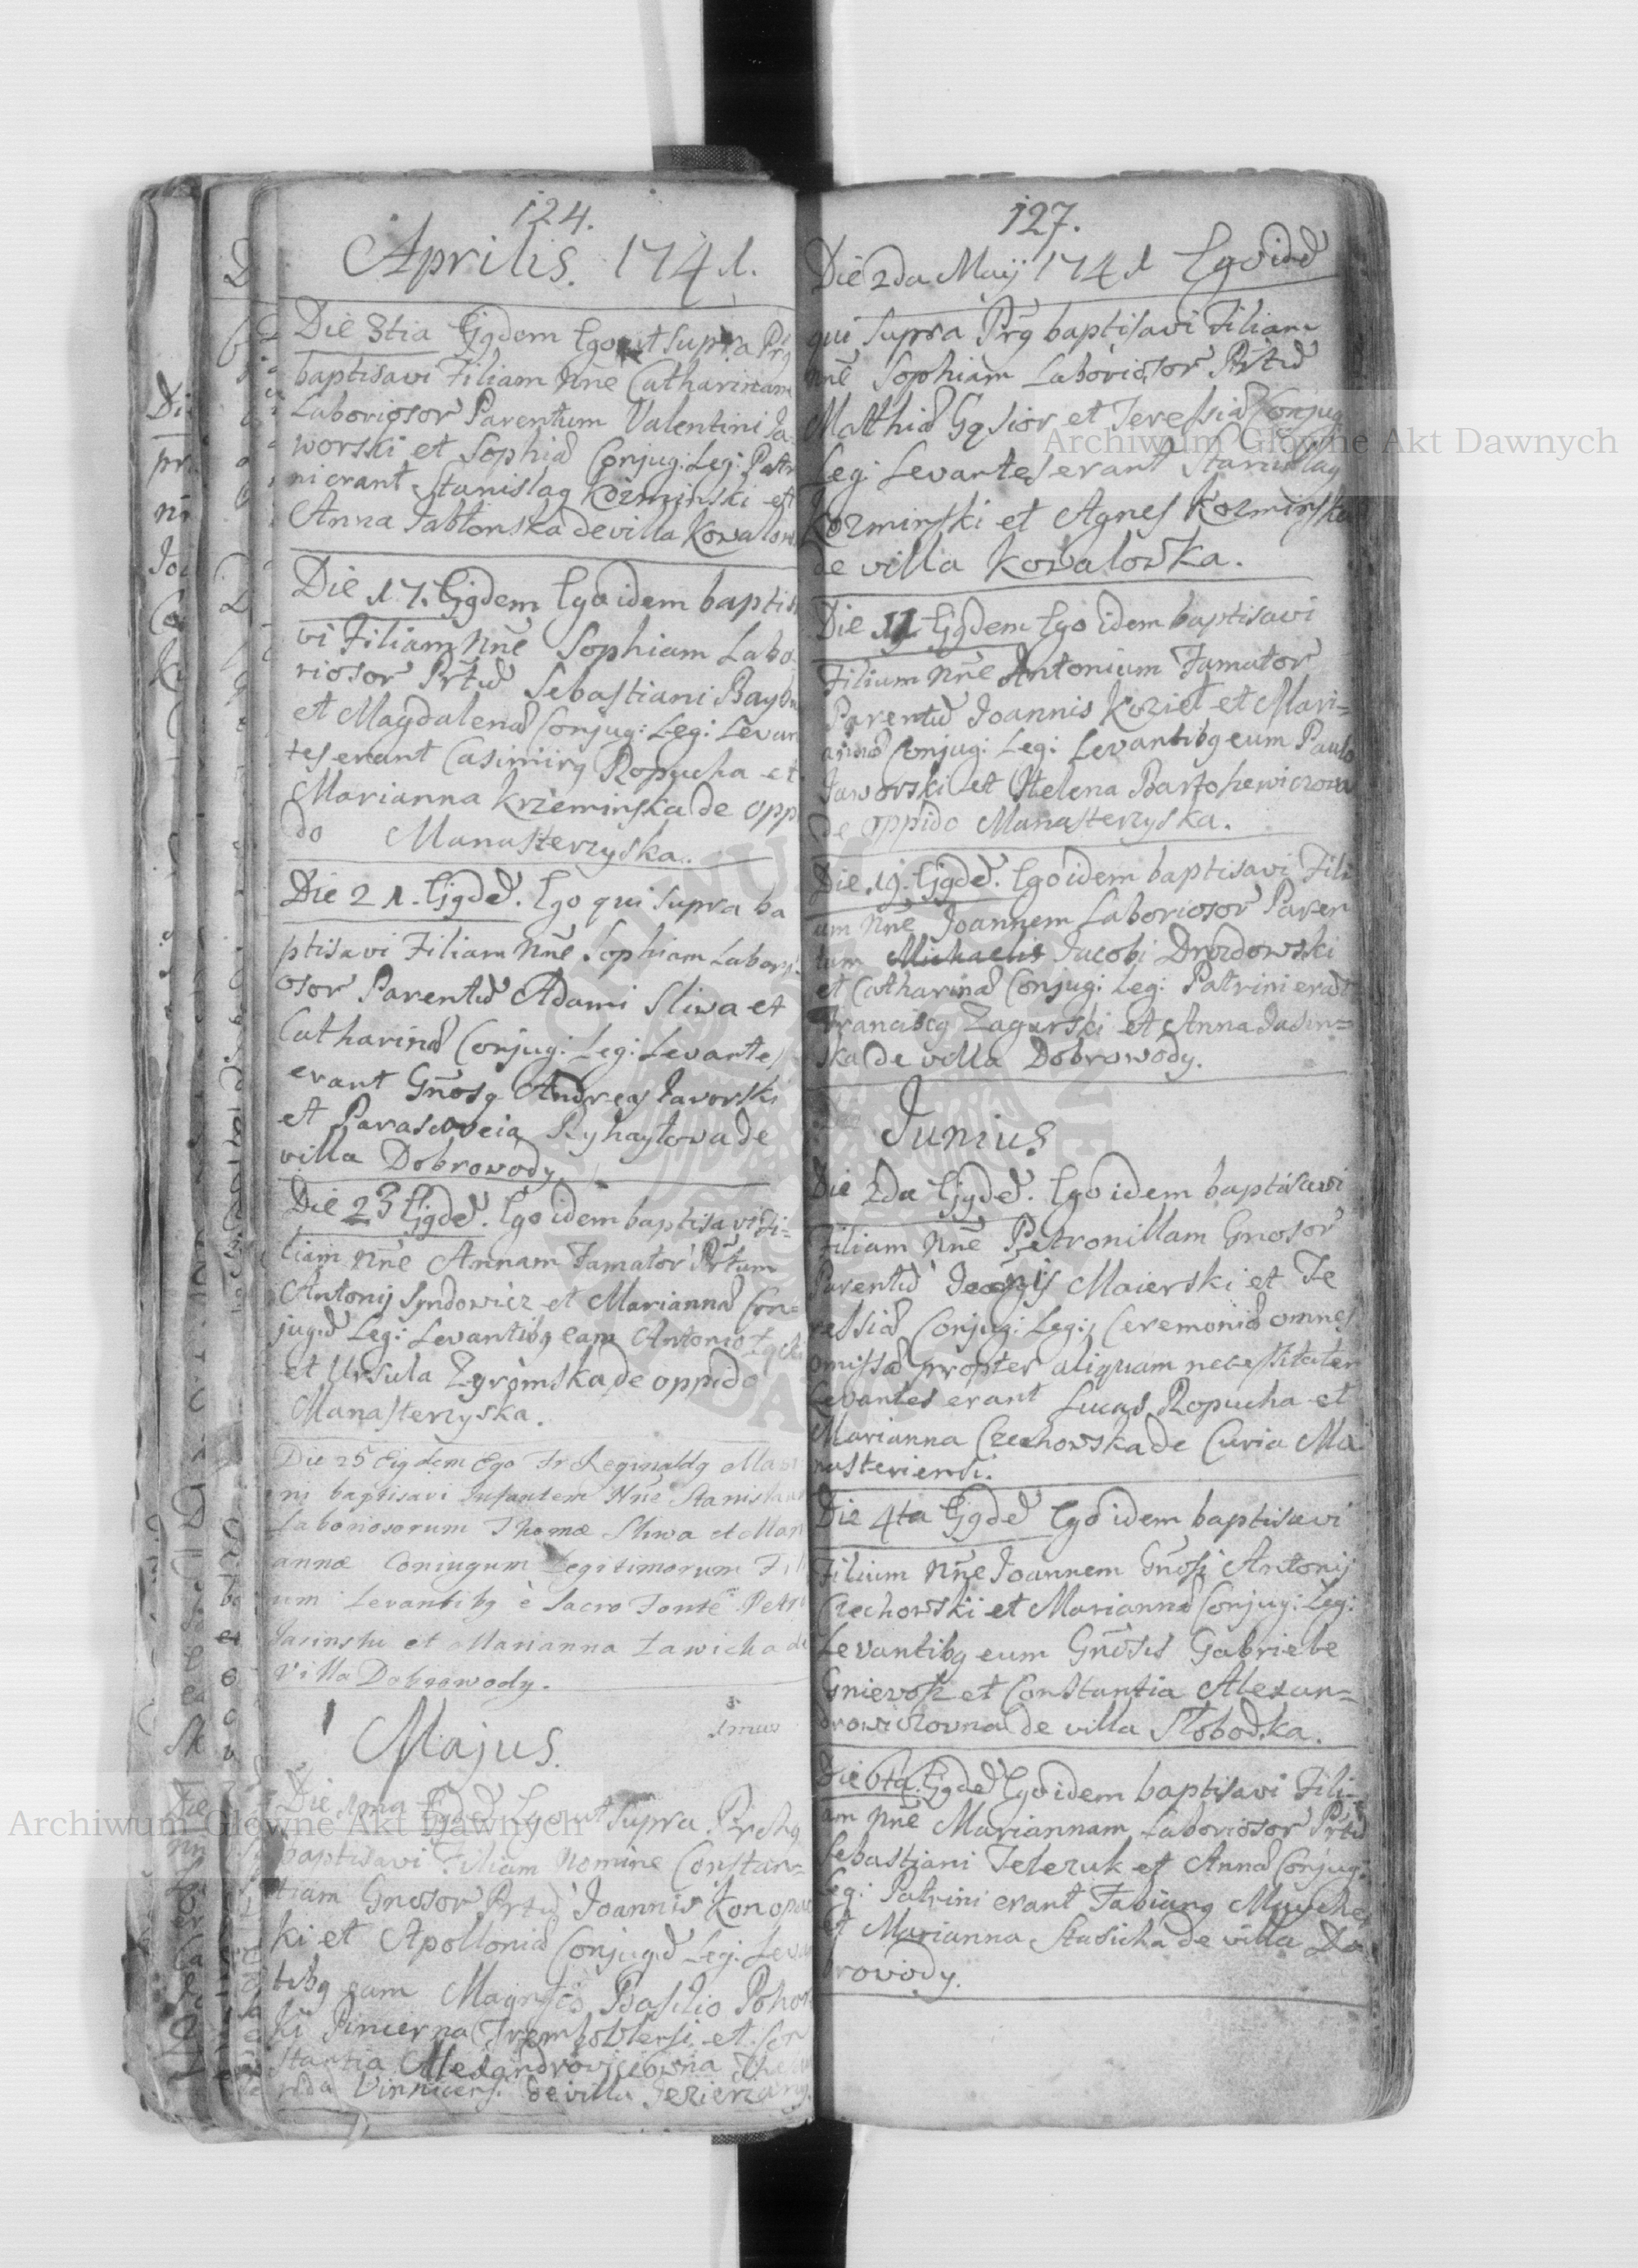 124.
Aprilis. 1741.
Die 3tia Ejgdem Ego ut Supra Prg
baptisavi Filiam Nne Catharinam
Laboriosor Parentum Valentini Ja-
worski et Sophiæ Conjug: Leg: Patri
ni erant Stanislag Kozminski et
Anna Jabłonska de villa Kowalow
Die 17. Ejgdem Ego idem baptisa
vi Filiam Nne Sophiam Labo-
riosor Prtum Sebastiani Baybu
et Magdalenæ Conjug: Leg: Levan
tes erant Casimirg Ropucha et
Marianna Krzeminska de oppi
do Manasterzyska.
Die 21. Ejgdem. Ego qui supra ba
ptisavi Filiam Nne Sophiam Labori-
osor Parentum Adami Sliwa et
Catharinæ Conjug: Leg: Levantes
erant Gnosg Andreas Javorski
et Parasceveia Ryhaylowa de
villa Dobrowody
Die 23 Ejgdem. Ego idem baptisavi Fi-
liam Nne Annam Famator Prtum
Antonij Syndowicz et Mariannæ Con-
jugum Leg: Levantibg eam Antonio
et Ursula Zgromska de oppido
Manasterzyska.
Die 25 Eigdem Ego Fr Reginaldg
ni baptisavi Infantem Nne Stanislaum
Laboriosorum Thomæ Sliwa et Mari
annæ Coniugum Legitimorum Fili
um Levantibg è Sacro Fonte Petro
Jasinski et Marianna Ławicka de
Villa Dobrowody.
Majus.
Die 1ma Ejgdem Ego ut Supra
baptisavi Filiam Nomine Constan-
tiam Gnosor Prtum Joannis Konopac
ki et Apolloniæ Conjugum Leg: Levan
tibg eam Magnfco Basilio
ki Pincerna Trembovlensi et
stantia Alexandrowiczowna
Vinnicens. de villa Jezierzany.
127.
Die 2da Maij 1741 Ego idem
qui Supra Prg baptisavi Filiam
Nne Sophiam Laboriosor Prtum
Matthiæ Gąsior et Teressiæ Conjug
Leg: Levantes erant Stanislag
Kozminski et Agnes Kozminska
de villa Kowalowka.
Die 11 Ejgdem Ego idem baptisavi
Filium Nne Antonium Famator
Parentum Joannis Kozieł et Mari-
annæ Conjug: Leg: Levantibg eum Paulo
Jaworski et Helena
de oppido Manasterzyska.
Die 19. Ejgdem. Ego idem baptisavi Fili
um Nne Joannem Laboriosor Paren
tum Michaelis Jacobi Drozdowski
et Catharinæ Conjug: Leg: Patrini erant
Franciscg Zagurski et Anna Jasin=
ska de villa Dobrowody.
Junius
Die 2da Ejgdem. Ego idem baptisavi
Filiam Nne Petronillam Gnosor
Parentum Maierski et Te
ressiæ Conjug: Leg: Ceremoniæ omnes
omissæ propter aliquam necessitatem
Levantes erant Lucas Ropucha et
Marianna Czechowska de Curia Ma
nasteriensi.
Die 4ta Ejgdem Ego idem baptisavi
Filium Nne Joannem Gnosi Antonij
Czechowski et Mariannæ Conjug: Leg:
Levantibg eum Gnosis Gabriele
Gniewosz et Constantia Alexan=
drowiczowna de villa Słobodka.
Die 6ta Ejgdem Ego idem baptisavi Fili-
am Nne Mariannam Laboriosor Prtum
Sebastiani Telezuk et Annæ Conjug:
Leg: Patrini erant Fabiang
et Marianna Stasicha de villa Do
browody.
Archiwum Główne Akt Dawnych
Archiwum Główne Akt Dawnych